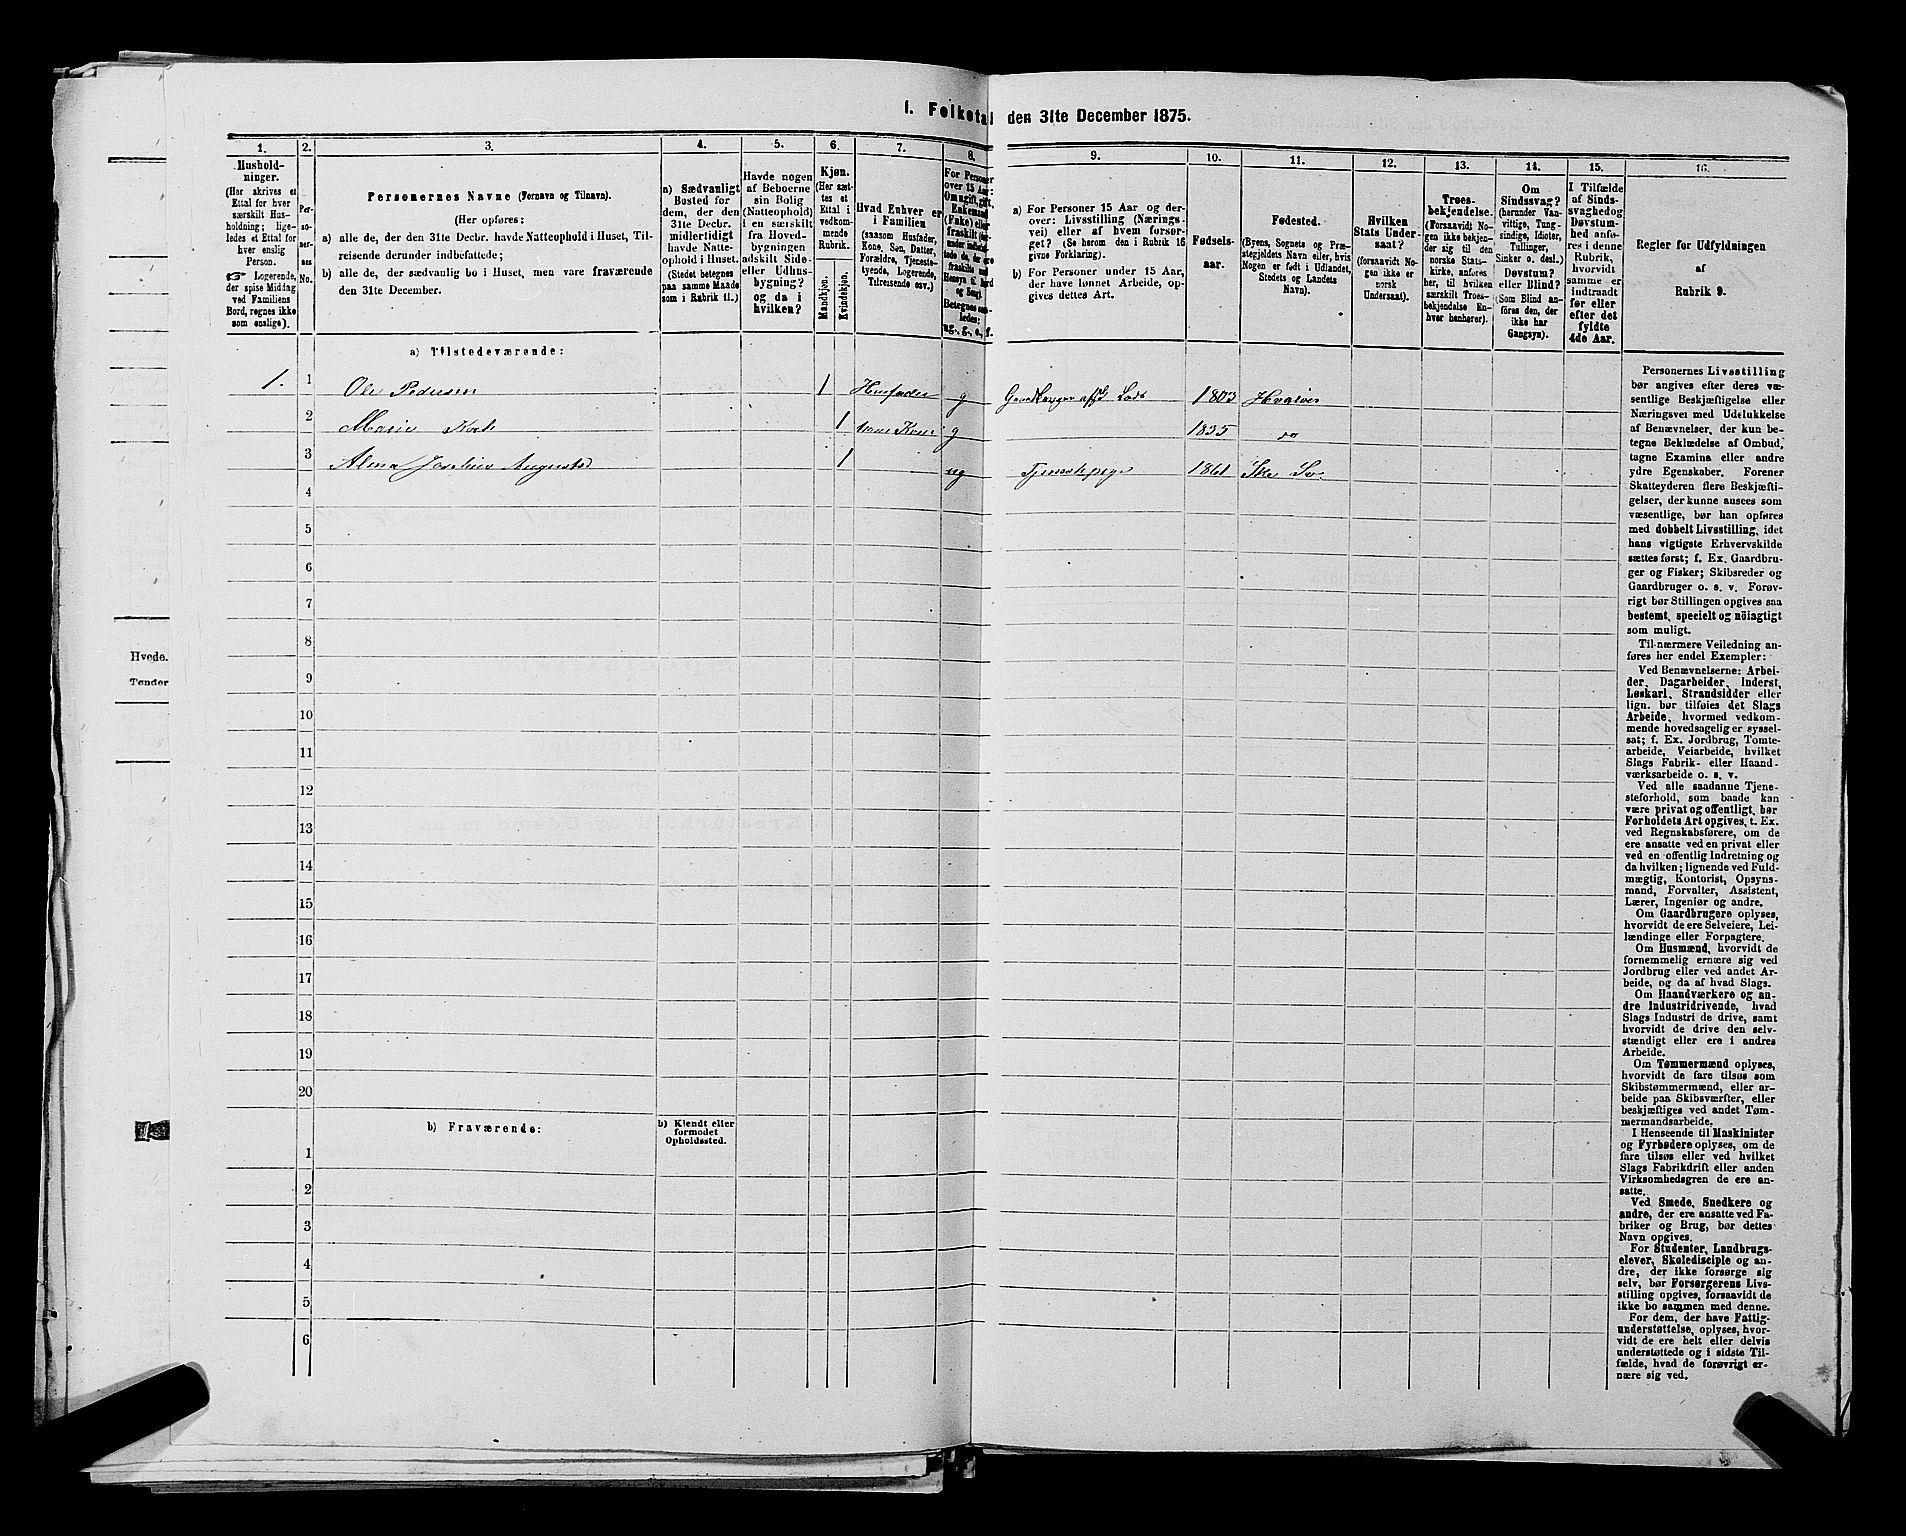 Hvede.
Tønder
I. Folketal den 31te December 1875.
1. 2. 3. 4. 5. 6. 7. 8. 9. 10. 11. 12. 13. 14. 15. 16.
Hushold-
ninger.
(Her skrives et
Ettal for hver
særskilt Hus-
holdning; lige-
ledes et Ettal for
hver enslig
Person.
☞ Logerende,
der spise Middag
ved Familiens
Bord, regnes ikke
som enslige).
Per-
so-
ner-
nes
No.
Personernes Navne (Fornavn og Tilnavn).
(Her opføres:
a) alle de, der den 31te Decbr. havde Natteophold i Huset, Til-
reisende derunder indbefattede;
b) alle de, der sædvanlig bo i Huset, men vare fraværende
den 31te December.
a) Sædvanligt
Bosted for
dem, der den
31te Decbr.
midlertidigt
havde Natte-
ophold i Huset.
(Stedet betegnes
paa samme Maade
som i Rubrik 11.)
Havde nogen
af Beboerne
sin Bolig
(Natteophold)
i en særskilt
fra Hoved-
bygningen
adskilt Side-
eller Udhus-
bygning?
og da i
hvilken?
Kjøn.
(Her sæt-
tes et
Ettal i
vedkom-
mende
Rubrik.
Mandkjøn.
Kvindekjøn.
Hvad Enhver er
i Familien
(saasom Husfader,
Kone, Søn, Datter,
Forældre, Tjeneste-
tyende, Logerende,
Tilreisende osv.)
For Personer
over 15 Aar:
Om ugift, gift,
Enkemand
(Enke) eller
fraskilt
Betegnes saa-
ledes:
ug., g., e., f.
a) For Personer 15 Aar og der-
over: Livsstilling (Nærings-
vei) eller af hvem forsør-
get? (Se herom den i Rubrik 16
givne Forklaring).
b) For Personer under 15 Aar,
der have lønnet Arbeide, op-
gives dettes Art.
Fødsels-
aar.
Fødested.
(Byens, Sognets og Præ-
stegjeldets Navn eller, hvis
Nogen er født i Udlandet,
Stedets og Landets
Navn).
Hvilken
Stats Under-
saat?
(forsaavidt No-
gen ikke er
norsk
Undersaat).
Troes-
bekjendelse.
(Forsaavidt No-
gen ikke bekjen-
der sig til den
norske Stats-
kirke, anføres
her, til hvilken
særskilt Troes-
bekjendelse En-
hver henhører).
Om
Sindssvag?
(herunder Van-
vittige, Tung-
sindige, Idioter,
Tullinger,
Sinker o. desl.)
Døvstum?
eller Blind?
(Som Blind an-
føres den, der
ikke har
Gangsyn).
I Tilfælde
af Sinds-
svaghed og
Døvstum-
hed anfø-
res i denne
Rubrik,
hvorvidt
samme er
indtraadt
før eller
efter det
fyldte
4de Aar.
Regler for Udfyldningen
af
Rubrik 9.
a) Tilstedeværende:
1. 1 Ole Pedersen 1 Husfader g Gaardbruger Lods 1803 Hvaler
2 Marie 1 hans Kone g 1835 do
3 Alma Augusta 1 ug Tjenestepige 1861
4
5
6
7
8
9
10
11
12
13
14
15
16
17
18
19
20
b) Fraværende:
b) Kjendt eller
formodet
Opholdssted.
1
2
3
4
5
6
Personernes Livsstilling
bør angives efter deres væ-
sentlige Beskjæftigelse eller
Næringsvei med Udelukkelse
af Benævnelser, der kun be-
tegne Beklædelse af Ombud,
tagne Examina eller andre
ydre Egenskaber. Forener
Skatteyderen flere Beskjæfti-
gelser, der kunne ansees som
væsentlige, bør han opføres
med dobbelt Livsstilling, idet
hans vigtigste Erhvervskilde
sættes først; f. Ex. Gaardbru-
ger og Fisker; Skibsreder og
Gaardbruger o. s. v. Forøv-
rigt bør Stillingen opgives saa
bestemt, specielt og nöiagtigt
som muligt.
Til nærmere Veiledning an-
føres her endel Exempler:
Ved Benævnelserne: Arbei-
der, Dagarbeider, Inderst,
Løskarl, Strandsidder eller
lign. bør tilføies det Slags
Arbeide, hvormed vedkom-
mende hovedsagelig er syssel-
sat; f. Ex. Jordbrug, Tomte-
arbeide, Veiarbeide, hvilket
Slags Fabrik- eller Haand-
værksarbeide o. s. v.
Ved alle saadanne Tjene-
steforhold, som baade kan
være privat og offentligt, bør
Forholdets Art opgives, t. Ex.
ved Regnskabsførere, om de
ere ansatte ved en privat eller
ved en offentlig Indretning og
da hvilken; lignende ved Fuld-
mægtig, Kontorist, Opsyns-
mand, Forvalter, Assistent,
Lærer, Ingeniør og andre.
Om Gaardbrugere oplyses,
hvorvidt de ere Selveiere, Lei-
lændinge eller Forpagtere.
Om Husmænd, hvorvidt de
fornemmelig ernære sig ved
Jordbrug eller ved andet Ar-
beide, og da af hvad Slags.
Om Haandværkere og an-
dre Industridrivende, hvad
Slags Industri de drive, samt
hvorvidt de drive den selv-
stændigt eller ere i andres
Arbeide.
Om Tømmermænd oplyses,
hvorvidt de fare tilsøs som
Skibstømmermænd, eller ar-
beide paa Skibsværfter, eller
beskjæftiges ved andet Tøm-
mermandsarbeide.
I Henseende til Maskinister
og Fyrbødere oplyses, om de
fare tilsøs eller ved hvilket
Slags Fabrikdrift eller anden
Virksomhedsgren de ere an-
satte.
Ved Smede, Snedkere og
andre, der ere ansatte ved Fa-
briker og Brug, bør dettes
Navn opgives.
For Studenter, Landbrugs-
elever, Skoledisciple og an-
dre, der ikke forsørge sig
selv, bør Forsørgerens Livs-
stilling opgives, forsaavidt de
ikke bo sammen med denne.
For dem, der have Fattig-
understøttelse, oplyses, hvor-
vidt de ere helt eller delvis
understøttede og i sidste Til-
fælde, hvad de forøvrigt er-
nære sig ved.